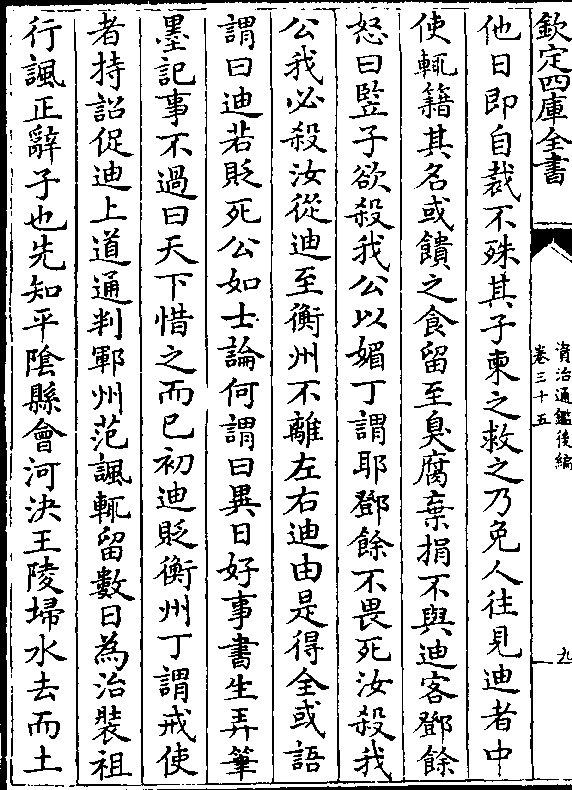 欽定四庫全書
資治通鑑後編
卷三十五
九
他日即自裁不殊其子柬之救之乃免人往見迪者中
使輒籍其名或饋之食留至臭腐棄捐不與迪客鄧餘
怒曰豎子欲殺我公以媚丁謂耶鄧餘不畏死汝殺我
公我必殺汝從迪至衡州不離左右迪由是得全或語
謂曰迪若貶死公如士論何謂曰異日好事書生弄筆
墨記事不過曰天下惜之而已初迪貶衡州丁謂戒使
者持詔促迪上道通判鄆州范諷輒留數日為治裝祖
行諷正辭子也先知平陰縣會河決王陵埽水去而土